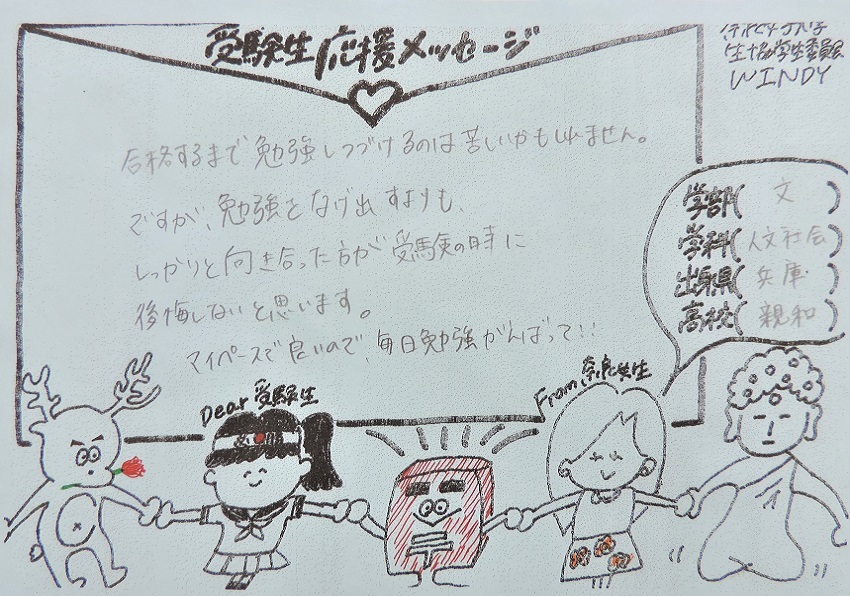 受験生応援メッセージ
生協学生委員会
WINDY
合格するまで勉強しつづけるのは苦しいかもしれません。
ですが、勉強をなげ出すよりも、
しっかりと向き合った方が受験の時に
後悔しないと思います。
マイペースで良いので、毎日勉強がんばって!!
学部(文)
学科(人文社会)
出身県(兵庫)
高校(親和)
Dear 受験生
From 奈良女生
必
〒